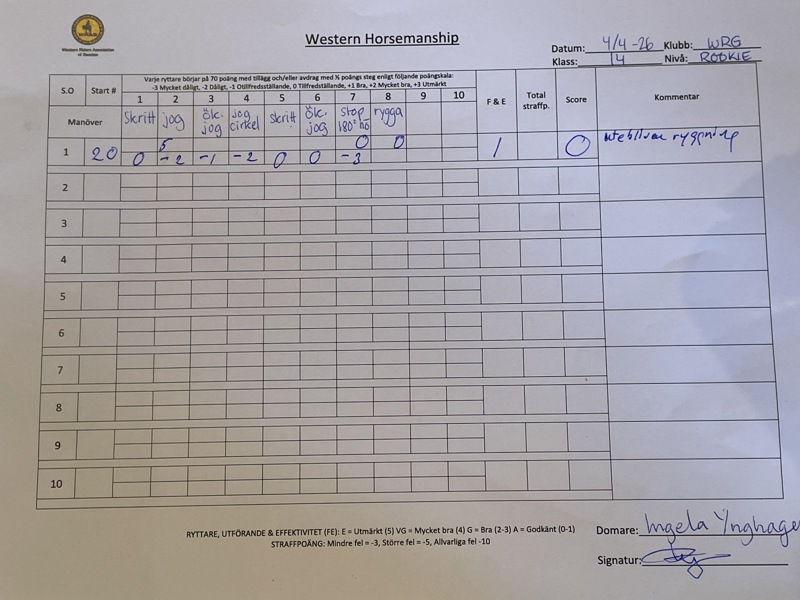 Western Riders Association
of Sweden
Western Horsemanship
Datum: 4/4-26 Klubb: WRG
Klass: 14 Nivå: ROOKIE
S.O Start # Varje ryttare börjar på 70 poäng med tillägg och/eller avdrag med ½ poängs steg enligt följande poängskala:
-3 Mycket dåligt, -2 Dåligt, -1 Otillfredsställande, 0 Tillfredställande, +1 Bra, +2 Mycket bra, +3 Utmärkt
1 2 3 4 5 6 7 8 9 10 F & E Total straffp. Score Kommentar
Manöver skritt jog ök. jog jog cirkel skritt ök. jog stop 180° hö rygga
5 0 0
1 20 0 -2 -1 -2 0 0 -3 1 0 utebliven ryggning
2
3
4
5
6
7
8
9
10
RYTTARE, UTFÖRANDE & EFFEKTIVITET (FE): E = Utmärkt (5) VG = Mycket bra (4) G = Bra (2-3) A = Godkänt (0-1)
STRAFFPOÄNG: Mindre fel = -3, Större fel = -5, Allvarliga fel -10
Domare: Ingela Ynghagen
Signatur: